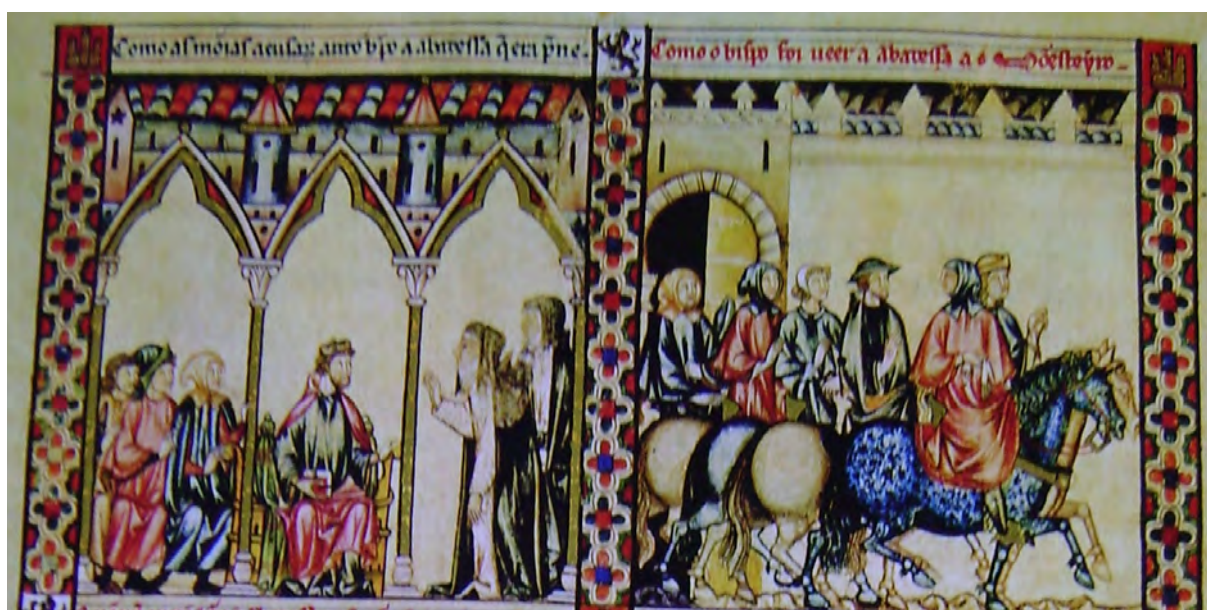 Como as mõias acusarã anto bp̃o a abatessa q̃ era p̃ne.
Como o bispo foi ueer a abatessa a o mõesteyro.